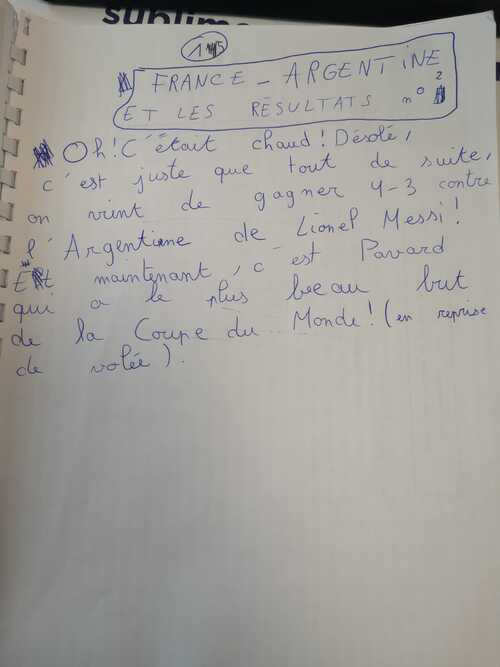 sublime
15
FRANCE - ARGENTINE
ET LES RÉSULTATS n°2
Oh! C'était chaud! Désolé,
c'est juste que tout de suite,
on vint de gagner 4-3 contre
l'Argentine de Lionel Messi!
Et maintenant, c'est Pavard
qui a le plus beau but
de la Coupe du Monde! (en reprise
de volée).